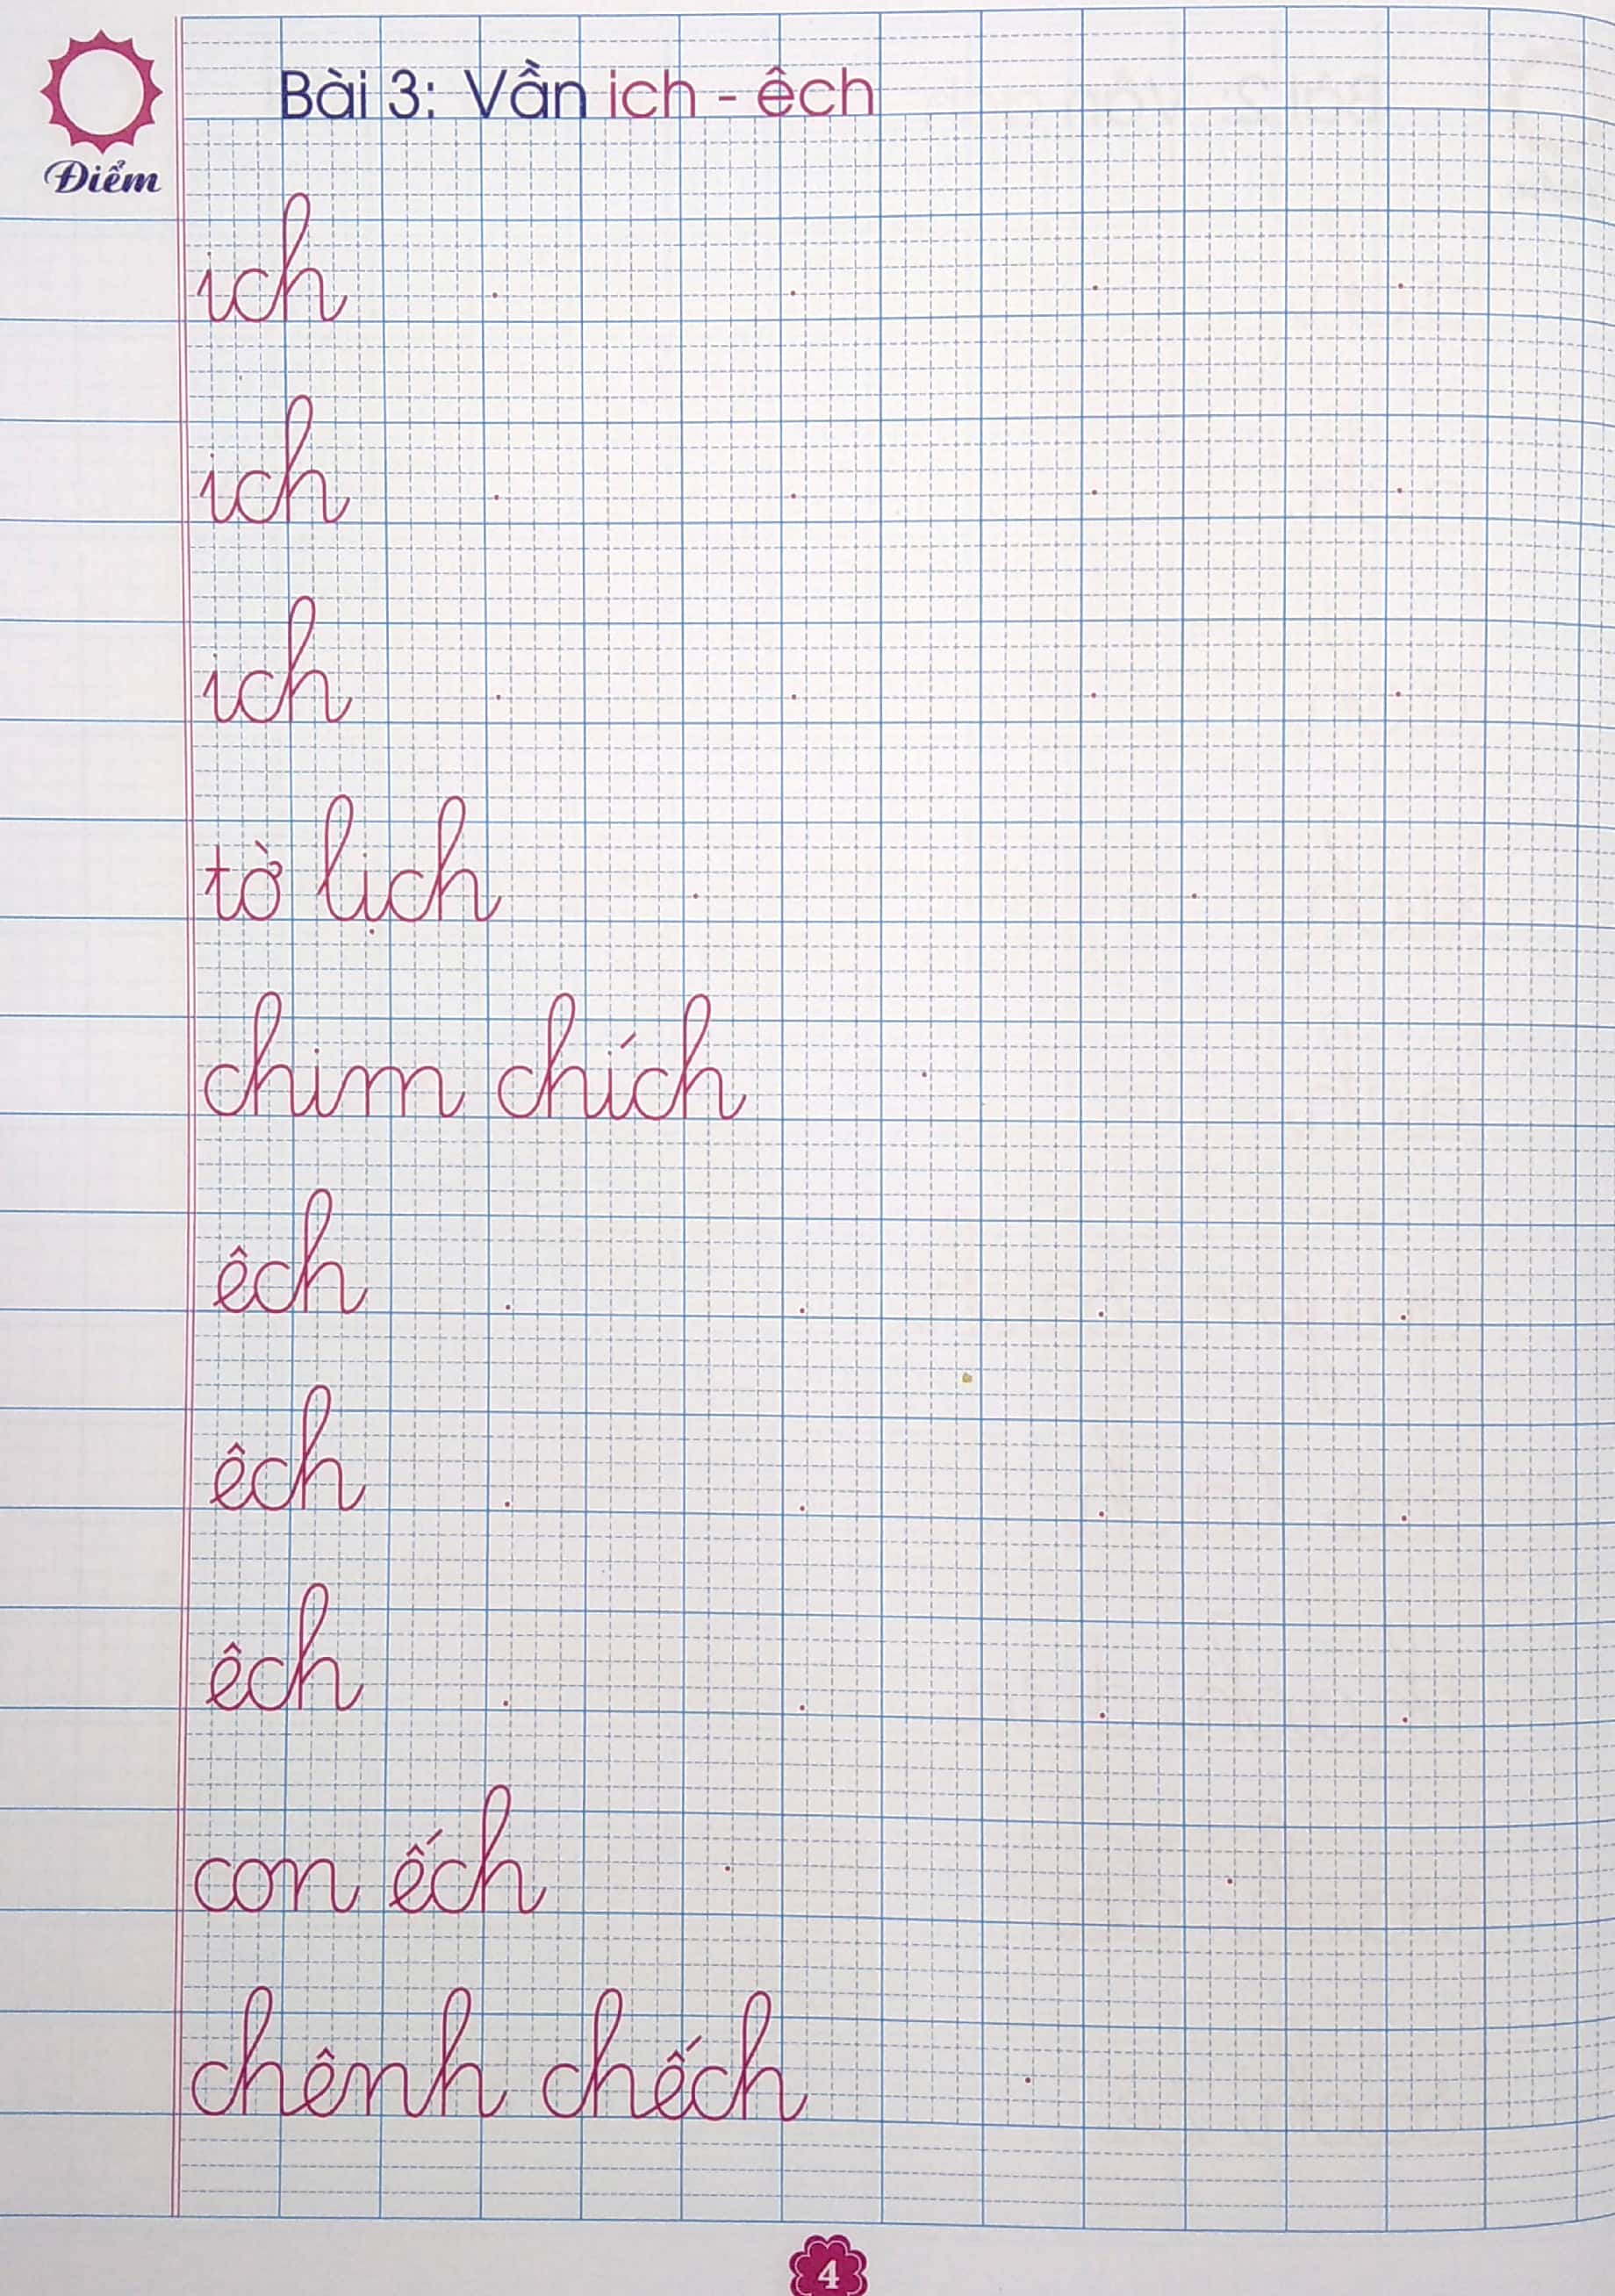 Bài 3: Vần ich - êch
Điểm
ich
ich
ich
tờ lịch
chim chích
êch
êch
êch
con ếch
chênh chếch
4